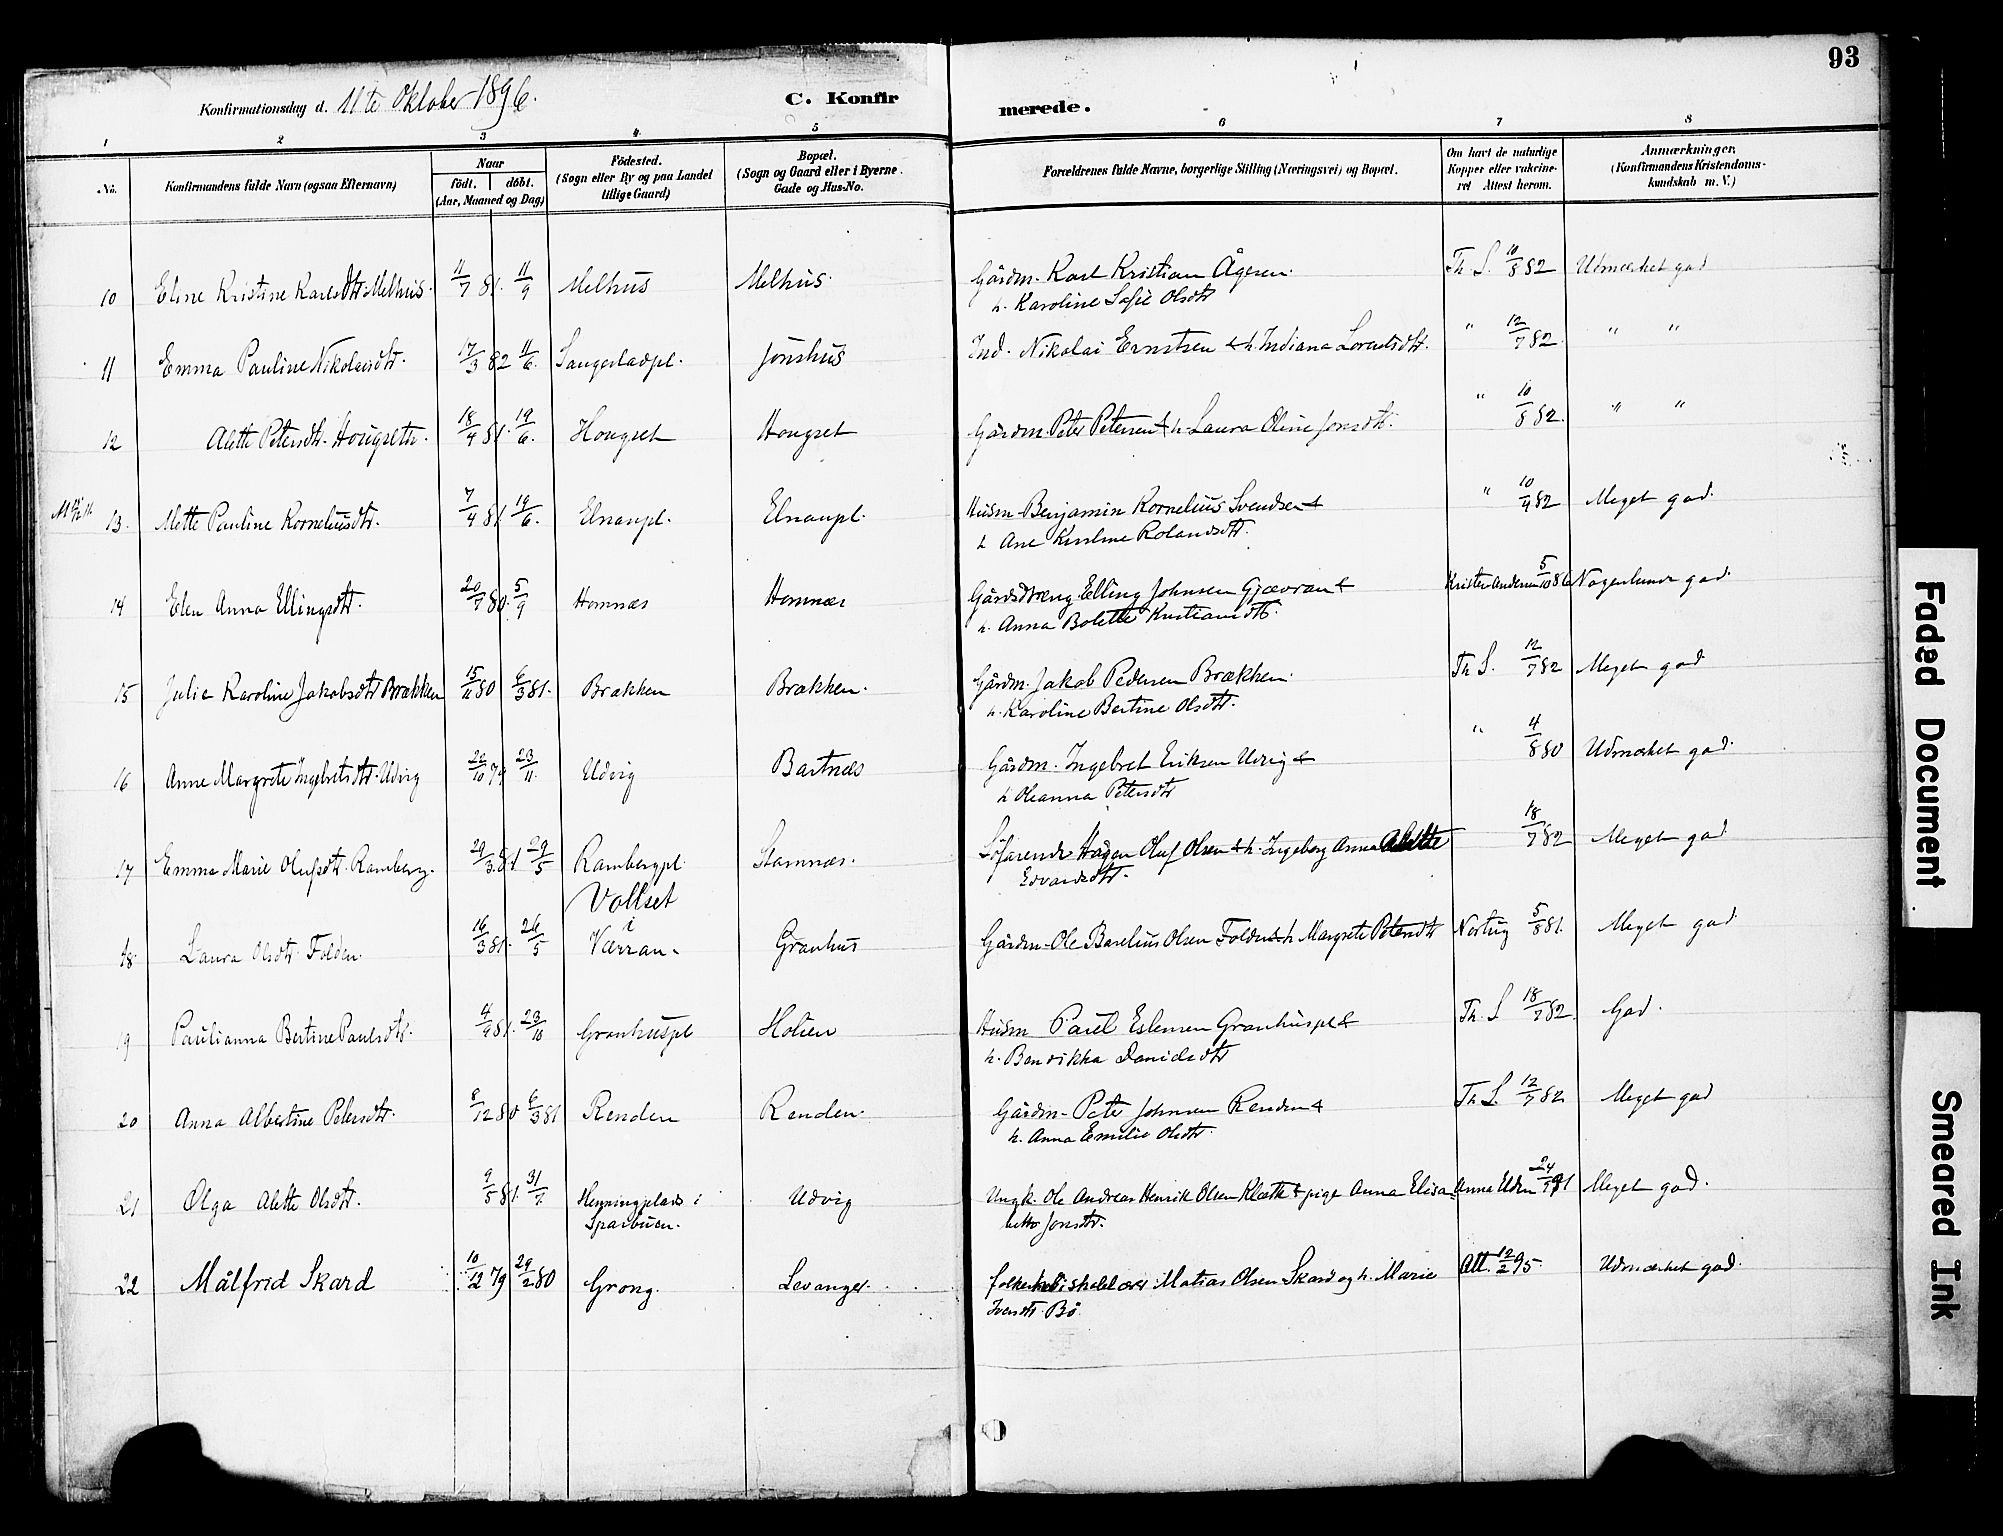 93
Konfirmationsdag d. 11te Oktober 1896.
C. Konfirmerede.
1 2 3 4 5 6 7 8
No. Konfirmandens fulde Navn (ogsaa Efternavn) Naar födt. döbt. (Aar, Maaned og Dag) Födested. (Sogn eller By og paa Landet tillige Gaard) Bopæl. (Sogn og Gaard eller i Byerne Gade og Hus-No. Forældrenes fulde Navne, borgerlige Stilling (Næringsvei) og Bopæl. Om havt de naturlige Kopper eller vakcineret Attest herom. Anmærkninger. (Konfirmandens Kristendomskundskab m. V.)
10 Eline Kristine Karlsdtr. Melhus. 11/7 81. 11/9 Melhus Melhus. Gårdm. Karl Kristian Ågesen. Th. S. 10/8 82 Udmærket god
h. Karoline Sofie Olsdtr
11 Emma Pauline Nikolaisdtr. 17/3 82 11/6. Jonshus Ind. Nikolai Ernstsen & h. Indiana Lorentsdtr. " 12/7 82. " "
12 Alette Petersdtr. Hougseth. 18/4 81. 19/6. Hougset Hougset Gårdm. Peter Petersen & h. Laura Oline Jonsdtr. " 10/8 82. " "
13. Mette Pauline Korneliusdtr. 7/4 81 19/6. Elnanpl. Elnanpl. Husm. Benjamin Kornelius Svendsen & " 10/9 82 Meget god.
h. Ane Kirstine Rolandsdtr.
14 Elen Anna Ellingsdtr. 20/7 80. 5/9 Homnæs Homnæs Elling Johnsen Gjævran & 5/10 86 Nogenlunde god.
h. Anna Bolette Kristiansdtr.
15 Julie Karoline Jakobsdtr Brækken 15/11 80 6/3 81. Brækken Brækken. Gårdm. Jakob Pedersen Brækken. Th S. 12/7 82 Meget god
h. Karoline Bertine Olsdtr.
16 Anne Margrete Ingebretsdtr. Udvig 26/10 79 23/11. Udvig Bartnæs Gårdm. Ingebret Eriksen Udvig & " 4/8 80 Udmærket god.
h Oleanna Petersdtr
17 Emma Marie Olufsdtr. Ramberg. 29/3 81 29/5 Rambergpl Stamnæs. Søfarende Hagen Oluf Olsen & h. Ingeborg Anna Alette 18/7 82 Meget god
Edvardsdtr.
18. Laura Olsdtr. Folden. 16/3 81. 26/5 Vollset i Værran. Granhus Gårdm. Ole Barelius Olsen Folden & h Margrete Petersdtr Nertug 5/8 81. Meget god
19 Paulianna Bertine Paulsdtr. 4/9 81. 23/10 Granhuspl Holien Husm Paul Granhuspl & Th. S 18/7 82. God.
h. Bendikka Danielsdtr
20 Anna Albertine Petersdtr. 8/12 80 6/3 81 Renden Renden. Gårdm. Peter Johnsen Renden & Th. S. 12/7 82 Meget god
h. Anna Emilie Olsdtr.
21 Olga Alette Olsdtr. 9/5 81. 31/7 Henningplads i Sparbuen. Udvig Ungk. Ole Andreas Henrik Olsen Klæth & pige Anna Elisabette Jonsdtr. Anna Uden Meget god.
22 Målfrid Skard 10/12 79 29/2 80 Grong. Levanger. Matias Olsen Skard og h. Marie Att. 12/2 95. Udmærket god.
Iversdtr. Bö.
Faded Document
Smeared Ink